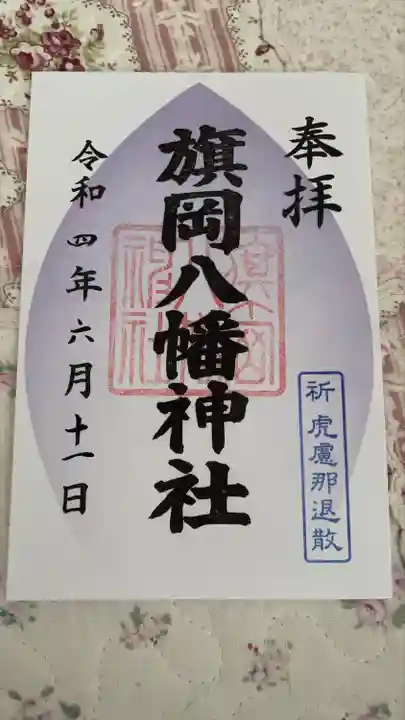 奉拝
旗岡八幡神社
令和四年六月十一日
祈 虎慮那退散